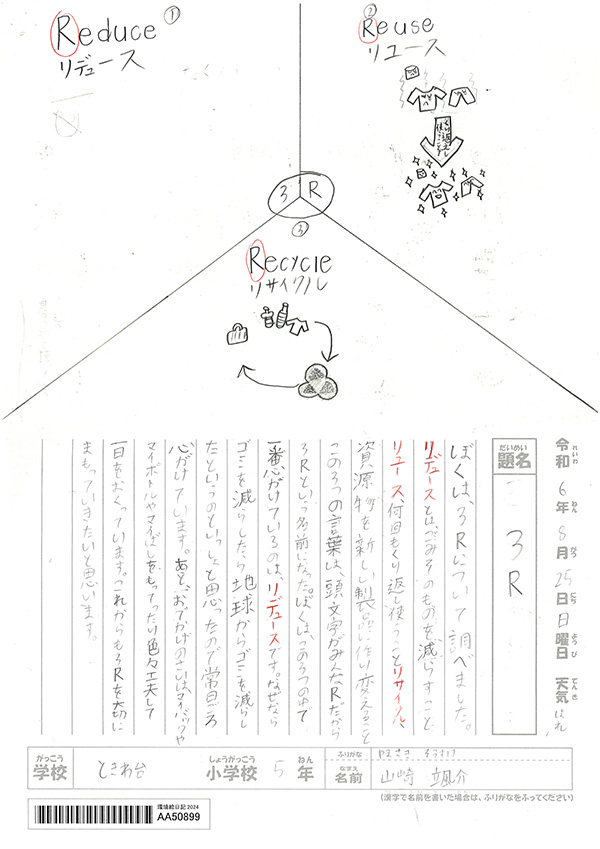 Reduce ①
リデュース
② Reuse
リユース
くり返し
3 R
③
Recycle
リサイクル
令和 6年 8月 25日 日曜日 天気 はれ
れいわ ねん がつ にち ようび てんき
だいめい
題名
3R
ぼくは、3Rについて調べました。
リデュースとは、ごみそのものを減らすこと
リユース、何回もくり返し使うことリサイクル、
資源物を新しい製品に作り変えること
この3つの言葉は、頭文字がみんなRだから
3Rという名前になった。ぼくは、この3つの中で
一番心がけているのは、リデュースです。なぜなら
ゴミを減らしたら地球からゴミを減らし
たというのといっしょと思ったので常日ごろ
心がけています。あと、おでかけのさいはエコバックや
マイボトルやマイばしをもってったり色々工夫して
一日をおくっています。これからも3Rを大切に
まもっていきたいと思います。
がっこう
学校
ときわ台
しょうがっこう
小学校
5
ねん
年
ふりがな
やまさき そうすけ
なまえ
名前
山崎 颯介
(漢字で名前を書いた場合は、ふりがなをふってください)
環境絵日記 2024
AA50899